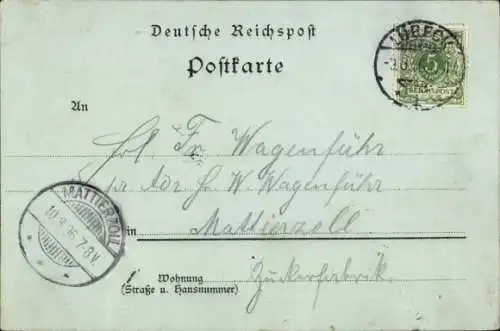 Deutsche Reichspost
Postkarte
LÜBECK
5
REICHSPOST
An
Frl Fr. Wagenführ
pr Adr H W. Wagenführ
in Mattierzoll
MATTIERZOLL
10 8 96 7-8V.
Wohnung
(Straße u. Hausnummer)
Zuckerfabrik.